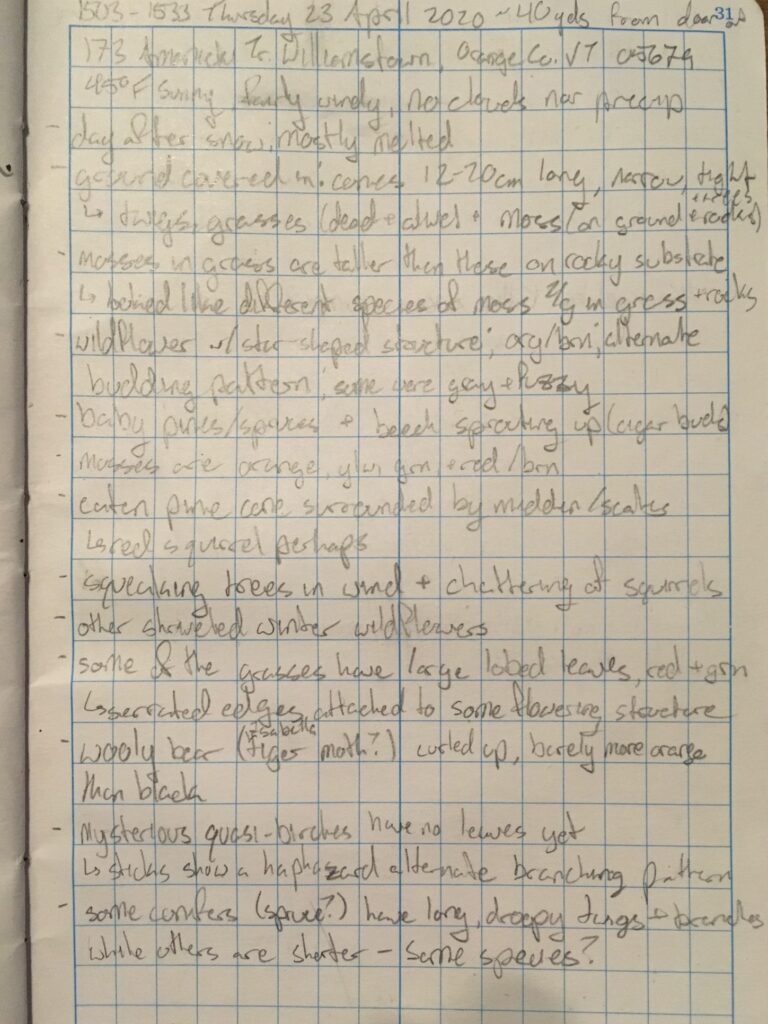 1503 - 1533 Thursday 23 April 2020 ~40yds from door of
31
173 Tr. Williamstown, Orange Co. VT 05679
45°F Sunny fairly windy, no clouds nor precip
- day after snow, mostly melted
- ground covered in: cones 12-20cm long, narrow, tight
↳ twigs, grasses (dead + alive) + moss (on ground + rocks)
+ trees
- mosses in grass are taller than those on rocky substrate
↳ looked like different species of moss b/g in grass + rocks
- wildflower w/ star-shaped structure; org/brn; alternate
budding pattern; some were gray + fuzzy
- baby pines/spruces + beech sprouting up (cigar buds)
- mosses are orange, ylw, grn, + red/brn
- eaten pine cone surrounded by midden/scales
↳ red squirrel perhaps
- squeaking trees in wind + chattering of squirrels
- other shriveled winter wildflowers
- some of the grasses have large lobed leaves, red + grn
↳ serrated edges, attached to some flowering structure
- wooly bear (Isabella tiger moth?) curled up, barely more orange
than black
- Mysterious quasi-birches have no leaves yet
↳ sticks show a haphazard alternate branching pattern
- some conifers (spruce?) have long, droopy twigs + branches
while others are shorter - same species?